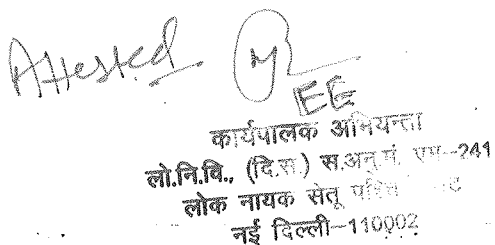 Attested
EE
कार्यपालक अभियन्ता
लो.नि.वि., (दि.स.) स.अनु.मं. एम-241
लोक नायक सेतू
नई दिल्ली-110002